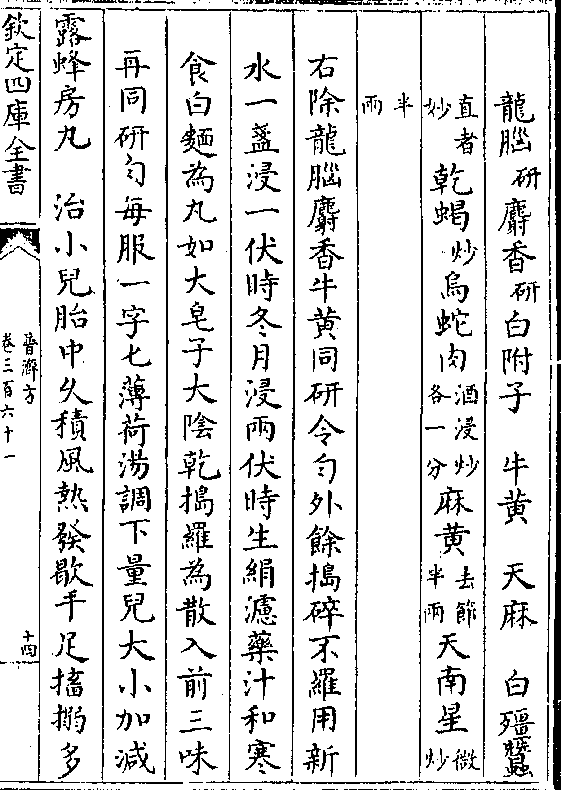 龍腦研麝香研白附子　牛黄　天麻　白殭蠶
直者炒乾蝎炒烏蛇肉酒浸炒各一分麻黄去節半兩天南星微炒
半兩
右除龍腦麝香牛黄同研令匀外餘搗碎不羅用新
水一盞浸一伏時冬月浸兩伏時生絹濾藥汁和寒
食白麵為丸如大皂子大陰乾搗羅為散入前三味
再同研匀每服一字匕薄荷湯調下量兒大小加減
露蜂房丸　治小兒胎中久積風熱發歇手足搐搦多
欽定四庫全書
普濟方
卷三百六十一
十四